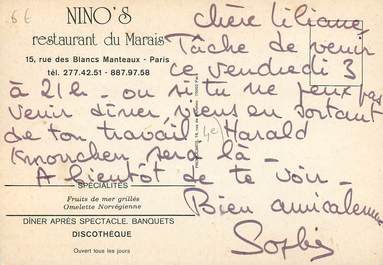 6€
NINO'S
restaurant du Marais
15, rue des Blancs Manteaux - Paris
tél. 277.42.51 - 887.97.58
chère Liliane
Tâche de venir
ce vendredi 3
à 21h - ou si tu ne peux pas
venir dîner, viens en sortant
de ton travail Harald
sera là -
A bientôt de te voir -
Bien amicalement
Sophie
SPÉCIALITÉS
Fruits de mer grillés
Omelette Norvégienne
DÎNER APRÈS SPECTACLE. BANQUETS
DISCOTHÈQUE
Ouvert tous les jours